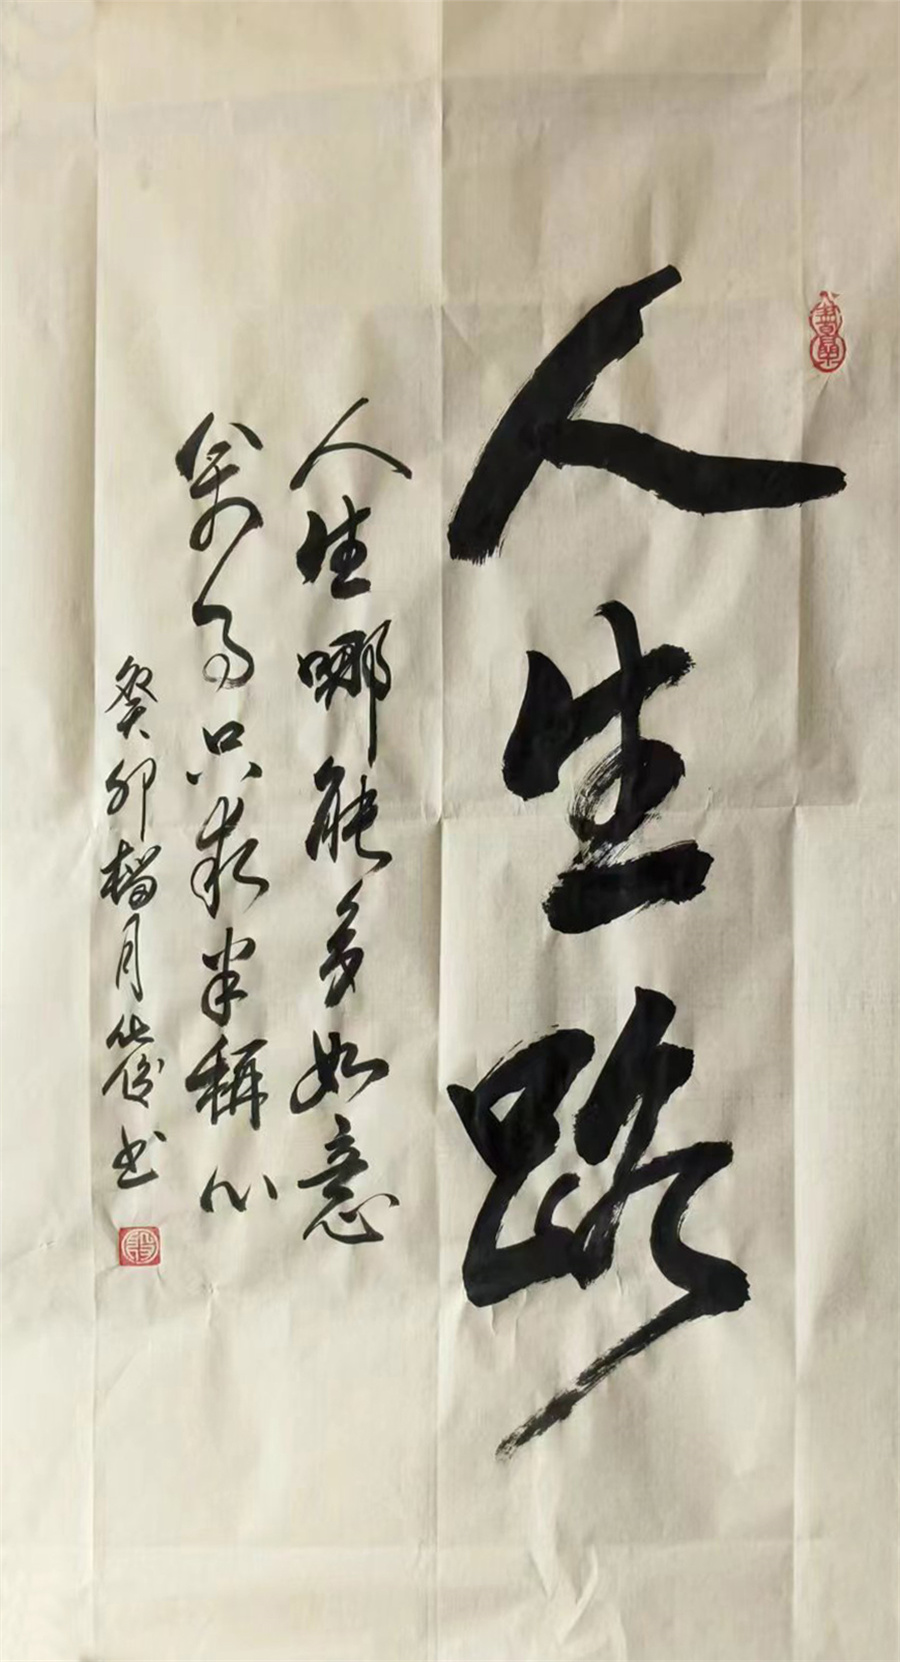 人生路
人生哪能多如意
万事只求半称心
癸卯榴月 书